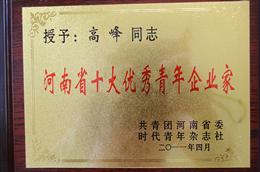 授予：高峰 同志
河南省十大优秀青年企业家
共青团河南省委
时代青年杂志社
二〇一一年四月